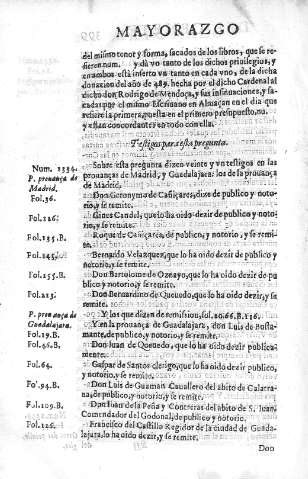 MAYORAZGO
del mismo tenor y forma, sacados de los libros, que se re-
fieren num. y dà vo tanto de los dichos priuilegios, y
en ambos està inserto vn tanto en cada vno, de la dicha
donacion del año de 489. hecha por el dicho Cardenal al
dicho don Rodrigo de Mendoça, y sus instituciones, y sa-
cadas por el mismo Escriuano en Almaçan en el dia que
refiere la primera, puesta en el primero presupuesto, nu.
y estan concordantes en todo con ella.
Testigos para esta pregunta.
Num. 1334.
Sobre esta pregunta dizen veinte y vn testigos en las
P. prouança de
Madrid.
prouanças de Madrid, y Guadalajara: los de la prouança
de Madrid.
Fol.36.
Don Geronymo de Cañiçares, dize de publico y noto-
rio, y se remite.
Fol.126.
Gines Candel, que lo ha oido dezir de publico y noto-
rio, y se remite.
Fol.135.B.
Roque de Cañiçares, de publico, y notorio, y se remi-
te.
Fol.145.
Bernardo Velazquez, que lo ha oido dezir de publico
y notorio, y se remite.
Fol.155.B.
Don Bartolome de Oznayo, que lo ha oido dezir de pu
blico y notorio, y se remite.
Fol.213.
Don Bernardino de Quebedo, que lo ha oido dezir, y se
remite.
P. prouança de
Guadalajara.
Y los que dizen de remission, fol. 20.66.B.116.
Y en la prouança de Guadalajara, don Luis de Busta-
Fol.19.B.
mante, de publico, y notorio, y se remite.
Fol.46.B.
Don Iuan de Quebedo, que lo ha oido dezir publica-
mente.
Fol.64.
Gaspar de Santos clerigo, que lo ha oido dezir publico y
notorio, y se remite.
Fol.94.B.
Don Luis de Guzman Cauallero del abito de Calatra-
na, de publico, y notorio, y se remite.
Fol.109.B.
Don Iuan de la Peña y Contreras del abito de S. Iuan,
Comendador del Godonal, de publico y notorio.
Fol.126.
Francisco del Castillo Regidor de la ciudad de Guada
lajara, lo ha oido dezir, y se remite.
Don